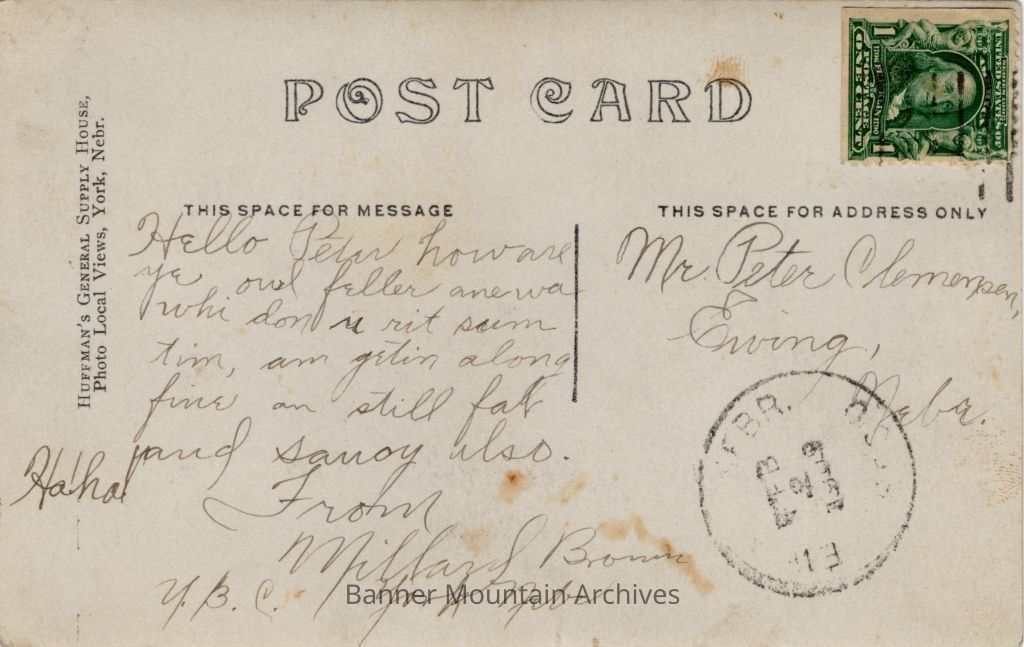 POST CARD
HUFFMAN'S GENERAL SUPPLY HOUSE,
Photo Local Views, York, Nebr.
THIS SPACE FOR MESSAGE
Hello Peter howare
ye owl feller anewa
whi don u rit sum
tim, am getin along
fine an still fat
and saucy also.
Ha ha!
From
Millard Brown
Y. B. C. York Nebr
THIS SPACE FOR ADDRESS ONLY
Mr. Peter Clemensen,
Ewing,
Nebr.
NEBR.
FEB
2
1909
ONE 1 CENT
POSTAGE
Banner Mountain Archives